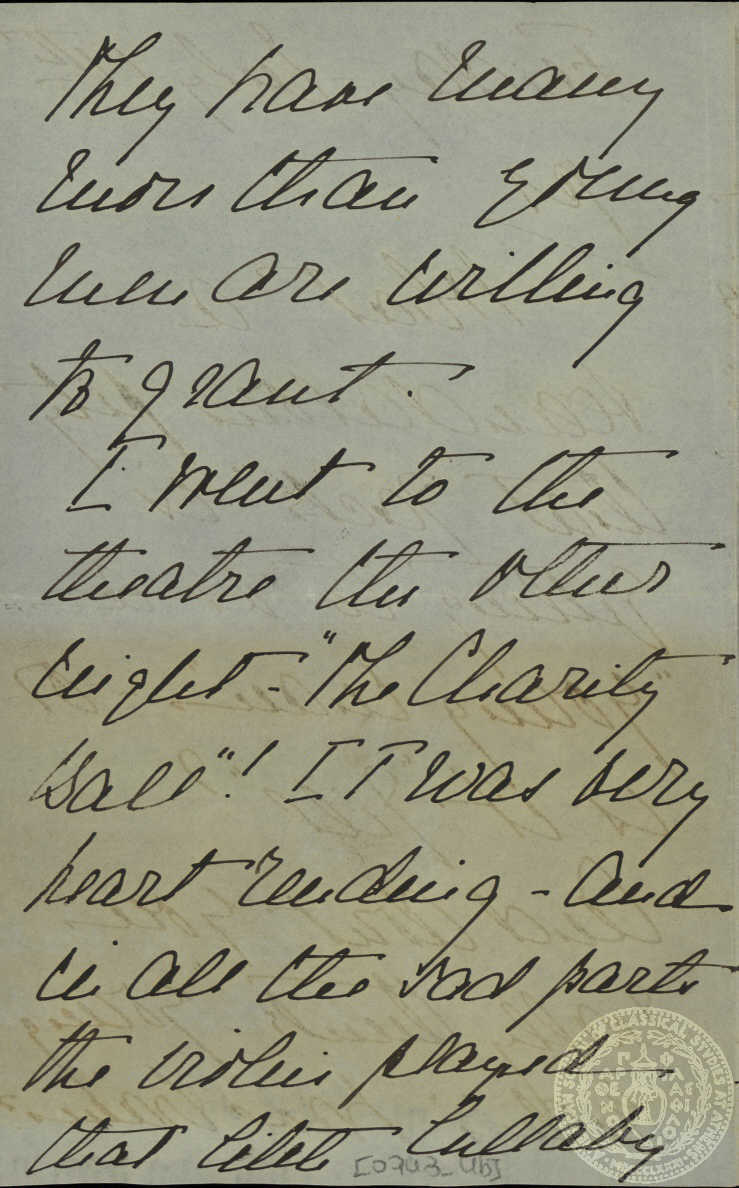 They have many
more than young
men are willing
to grant.
I went to the
theatre the other
night - "The Charity
Ball"! It was very
heart rending - and
in all the sad parts
the violin played
that little Lullaby
[0743_4b]